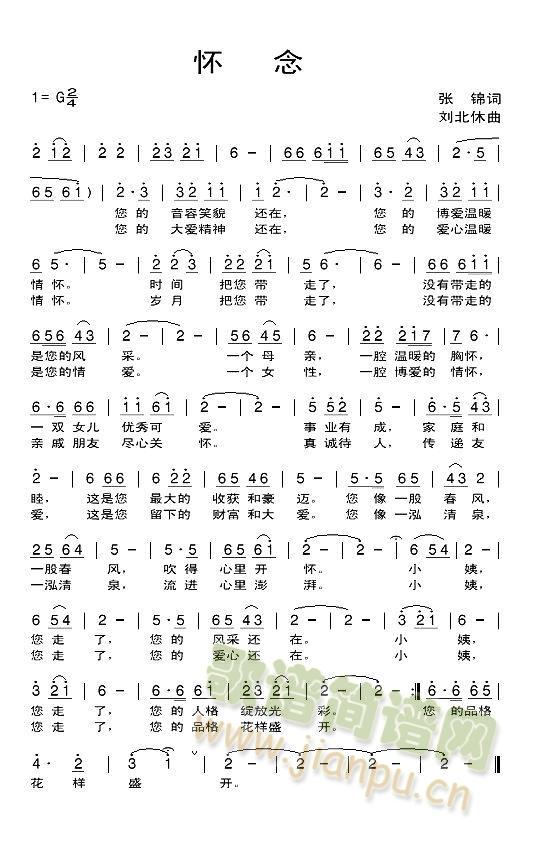 怀 念
1= G 2/4
张 锦词
刘北休曲
2 1 2 | 2 2 | 2 3 2 1 | 6 - | 6 6 6 1 1 | 6 5 4 3 | 2 · 5 |
6 5 6 1 ) | 2 · 3 | 3 2 1 1 | 1 2 · | 2 - | 3 · 2 | 3 2 1 1 |
您 的 音容笑貌 还在, 您 的 博爱温暖
您 的 大爱精神 还在, 您 的 爱心温暖
6 5 · | 5 - | 2 2 3 | 2 2 2 1 | 6 5 · | 6 - | 6 6 6 1 1 |
情 怀。 时 间 把您 带 走了, 没有带走的
情 怀。 岁 月 把您 带 走了, 没有带走的
6 5 6 4 3 | 2 - | 2 - | 5 6 4 5 | 6 - | 2 2 2 1 7 | 7 6 · |
是您的风 采。 一个 母 亲, 一腔 温暖的 胸怀,
是您的情 爱。 一个 女 性, 一腔 博爱的 情怀,
6 · 6 6 6 | 1 1 6 1 | 2 - | 2 - | 5 5 2 | 5 · 2 | 6 · 5 4 3 |
一 双 女儿 优秀可 爱。 事业有 成, 家 庭 和
亲 戚 朋友 尽心关 怀。 真诚待 人, 传 递 友
2 - | 6 6 6 | 6 2 2 | 6 5 4 6 | 5 · 5 | 6 5 5 | 4 3 2 |
睦, 这是您 最大的 收获 和豪 迈。 您 像 一股 春 风,
爱, 这是您 留下的 财富 和大 爱。 您 像 一泓 清 泉,
2 5 6 4 | 5 - | 5 · 5 | 6 5 6 1 | 2 - | 2 - | 6 5 4 |
一股春 风, 吹 得 心里 开 怀。 小 姨,
一泓清 泉, 流 进 心里 澎 湃。 小 姨,
6 5 4 | 2 - | 5 · 5 | 6 5 4 3 | 2 - | 2 - | 3 2 1 |
您 走 了, 您 的 风采 还 在。 小 姨,
您 走 了, 您 的 爱心 还 在。 小 姨,
3 2 1 | 6 - | 6 · 6 6 1 | 2 3 2 1 | 2 - | 2 - :|| 6 · 6 6 5 |
您 走 了, 您 的 人格 绽放光 彩。 您 的品格
您 走 了, 您 的 品格 花样盛 开。
4 · 2 | 3 1 | 2 - | 2 - ||
花 样 盛 开。
歌谱简谱网
www.jianpu.cn